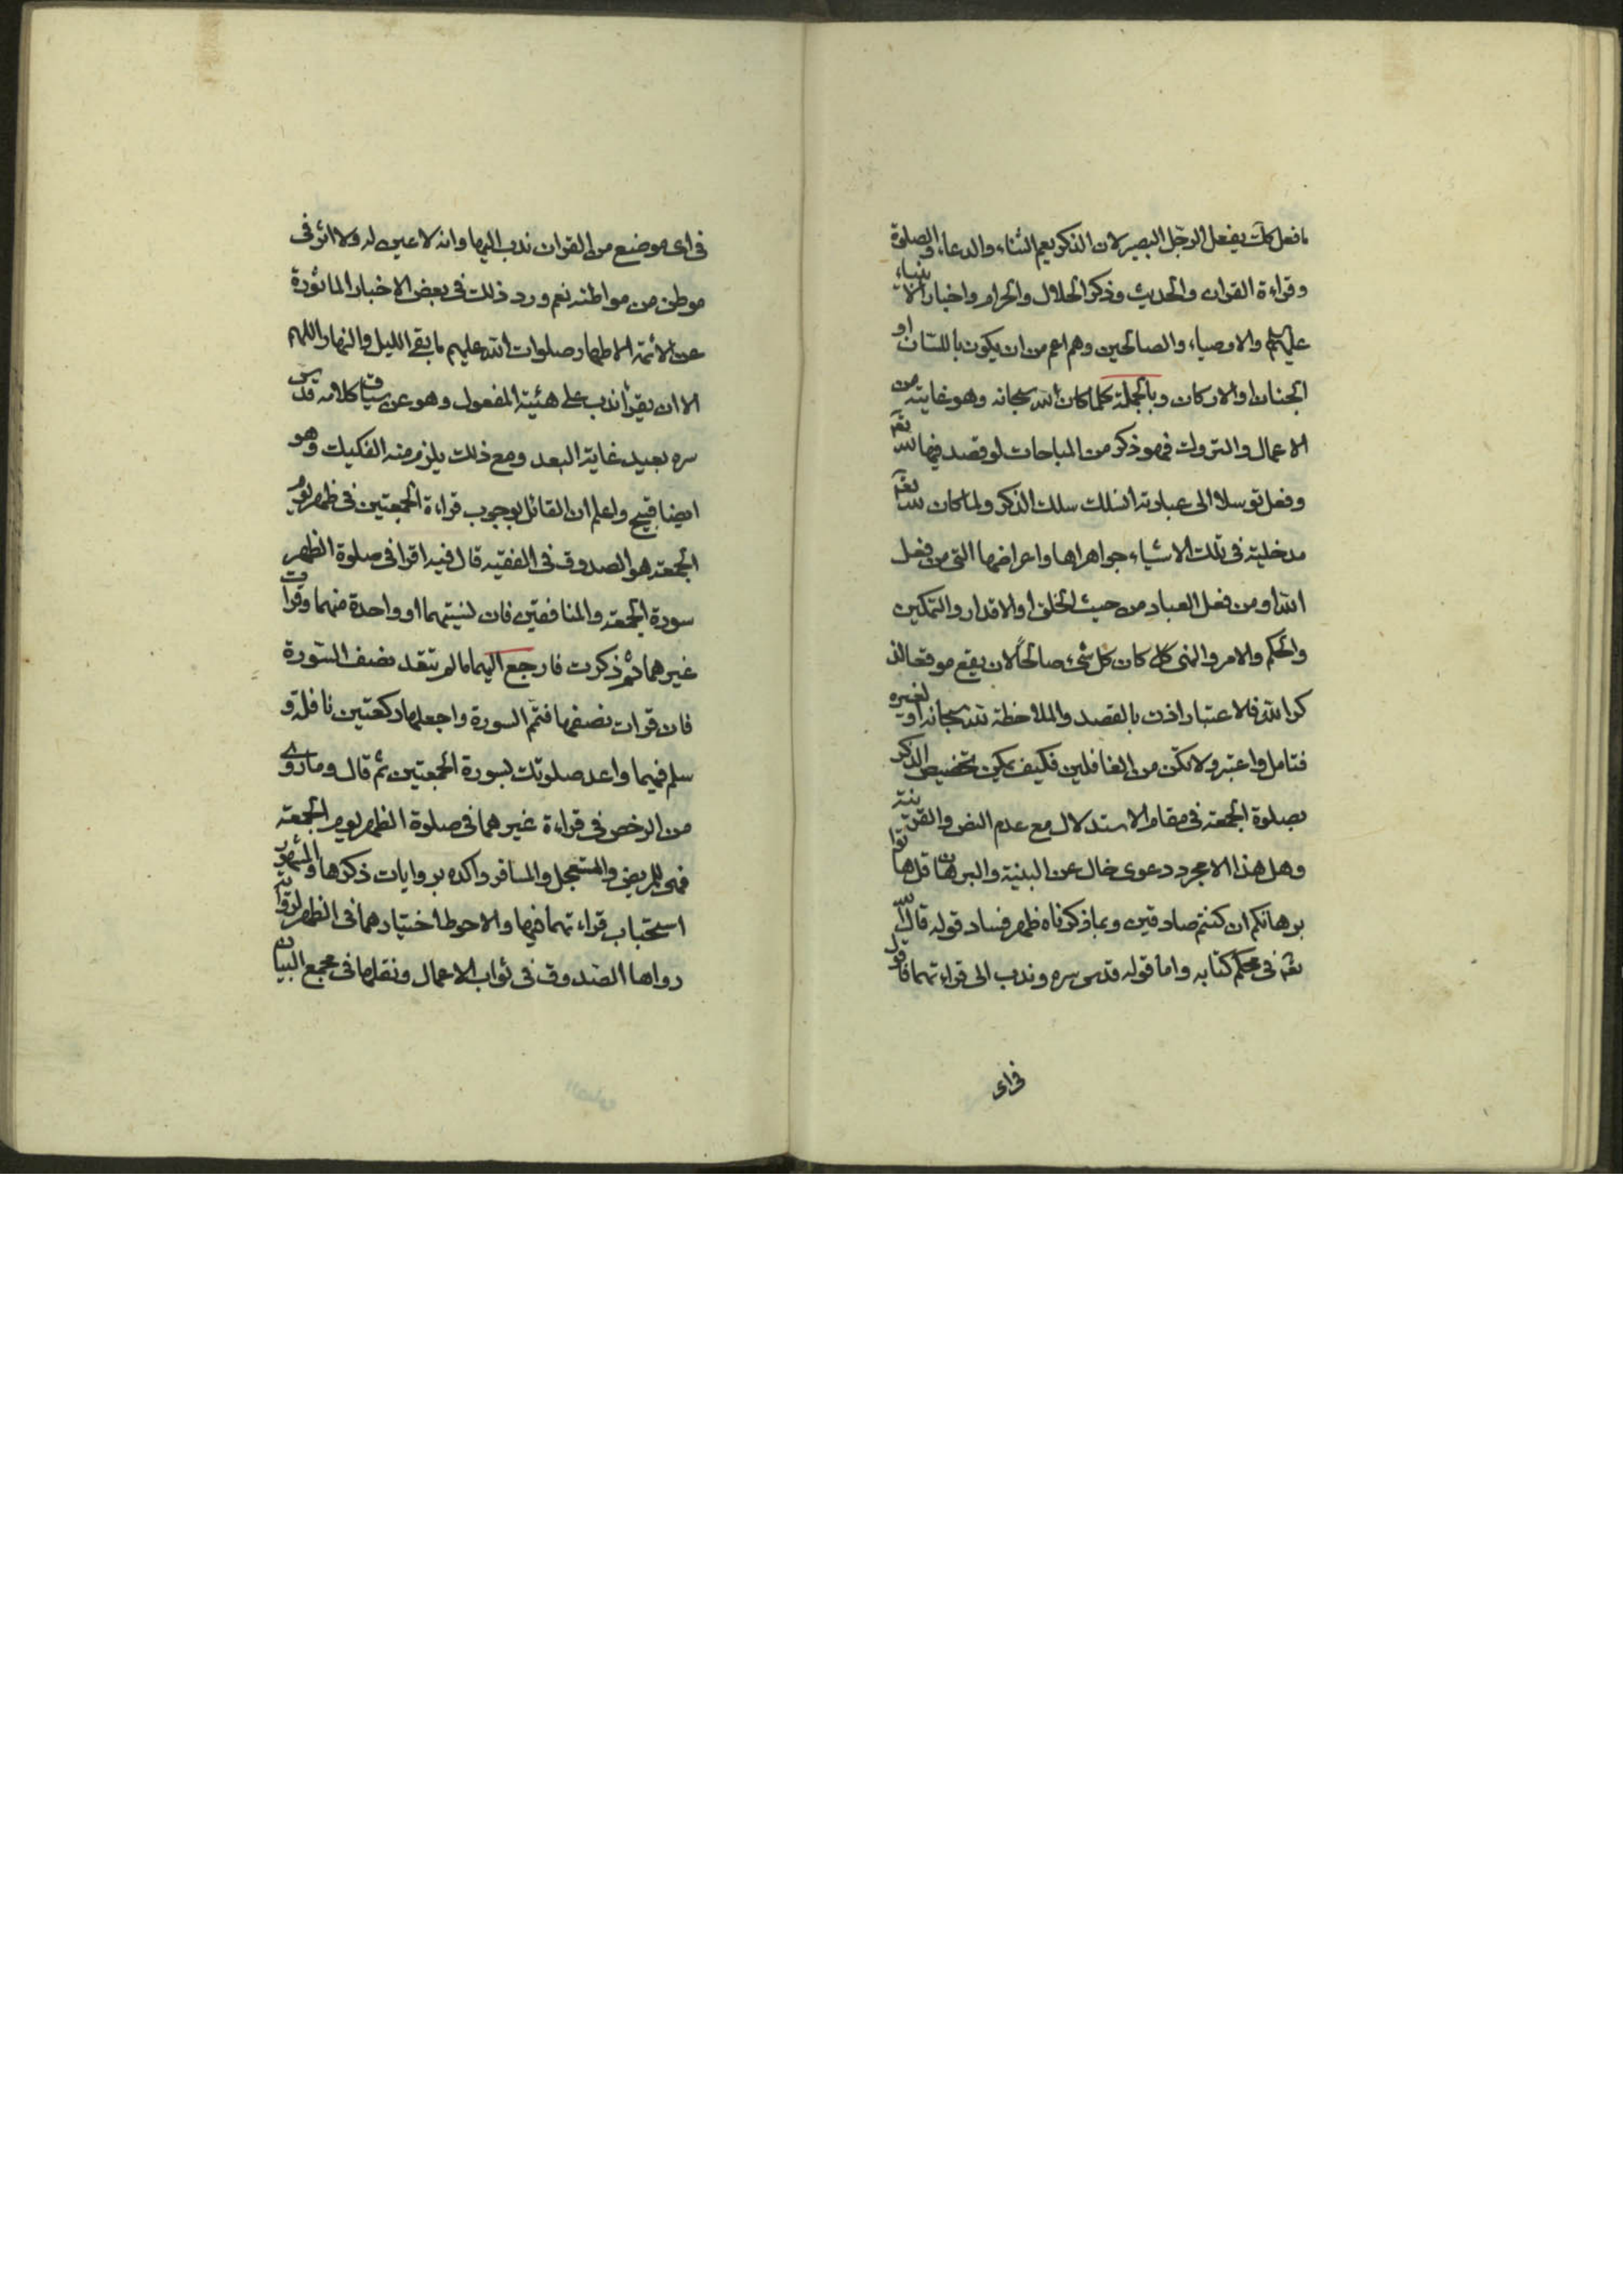 ما فعل كك يفعل الرجل البصير لان الذكر يعم الثناء والدعاء والصلوة
وقراءة القران والحديث وذكر الحلال والحرام واخبار الانبياء
عليهم والاوصياء والصالحين وهم اعم من ان يكون باللسان او
الجنان او الاركان وبالجملة كلما كان لله سبحانه وهو غايته من
الاعمال والتروك فهو ذكر من المباحات لو قصد فيها لله تعه
وفعل توسلا الى عبادته انسلك سلك الذكر ولما كان لله تعه
مدخلية في تلك الاشياء جواهراها واعراضها التي من فعل
الله او من فعل العباد من حيث الخلق او الاقدار والتمكين
والحكم والامر والنهى كان كل شئ صالحاً لان يقع موقعا لذ
كر الله فلا اعتبار اذن بالقصد والملاحظة لله سبحانه او لغيره
فتامل واعتبر ولا تكن من الغافلين فكيف يمكن تخصيص الذكر
بصلوة الجمعة في مقام الاستدلال مع عدم النص والقرينة
وهل هذا الا مجرد دعوى خال عن البينة والبرهان قل هاتوا
برهانكم ان كنتم صادقين وبما ذكرناه ظهر فساد قوله قال الله
تعه في محكم كتابه واما قوله قدس سره وندب الى قراءتهما فاقول
في اى
في اى موضع من القران ندب اليها وانه لا عين له ولا اثر في
موطن من مواطنه نعم ورد ذلك في بعض الاخبار الماثورة
عن الأئمة الاطهار صلوات الله عليهم ما بقى الليل والنهار اللهم
الا ان يقرأ ندب على هيئة المفعول وهو عن سياق كلامه قدس
سره بعيد غاية البعد ومع ذلك يلزم منه الفكيك وهو
ايضا قبيح واعلم ان القائل بوجوب قراءة الجمعتين في ظهر يوم
الجمعة هو الصدوق في الفقيه قال فيه اقرا في صلوة الظهر
سورة الجمعة والمنافقين فان نسيتهما او واحدة منهما وقرات
غيرهما ثم ذكرت فارجع اليهما ما لم تتعد نصف السورة
فان قرات نصفها فتم السورة واجعلها ركعتين نافلة و
سلم فيهما واعد صلوتك بسورة الجمعتين ثم قال وما روى
من الرخص في قراءة غيرهما في صلوة الظهر يوم الجمعة
فهي للمريض والمستعجل والمسافر واكده بروايات ذكرها والمشهور
استحباب قراءتهما فيها والاحوط اختيارهما في الظهر لرواية
رواها الصدوق في ثواب الاعمال ونقلها في مجمع البيان